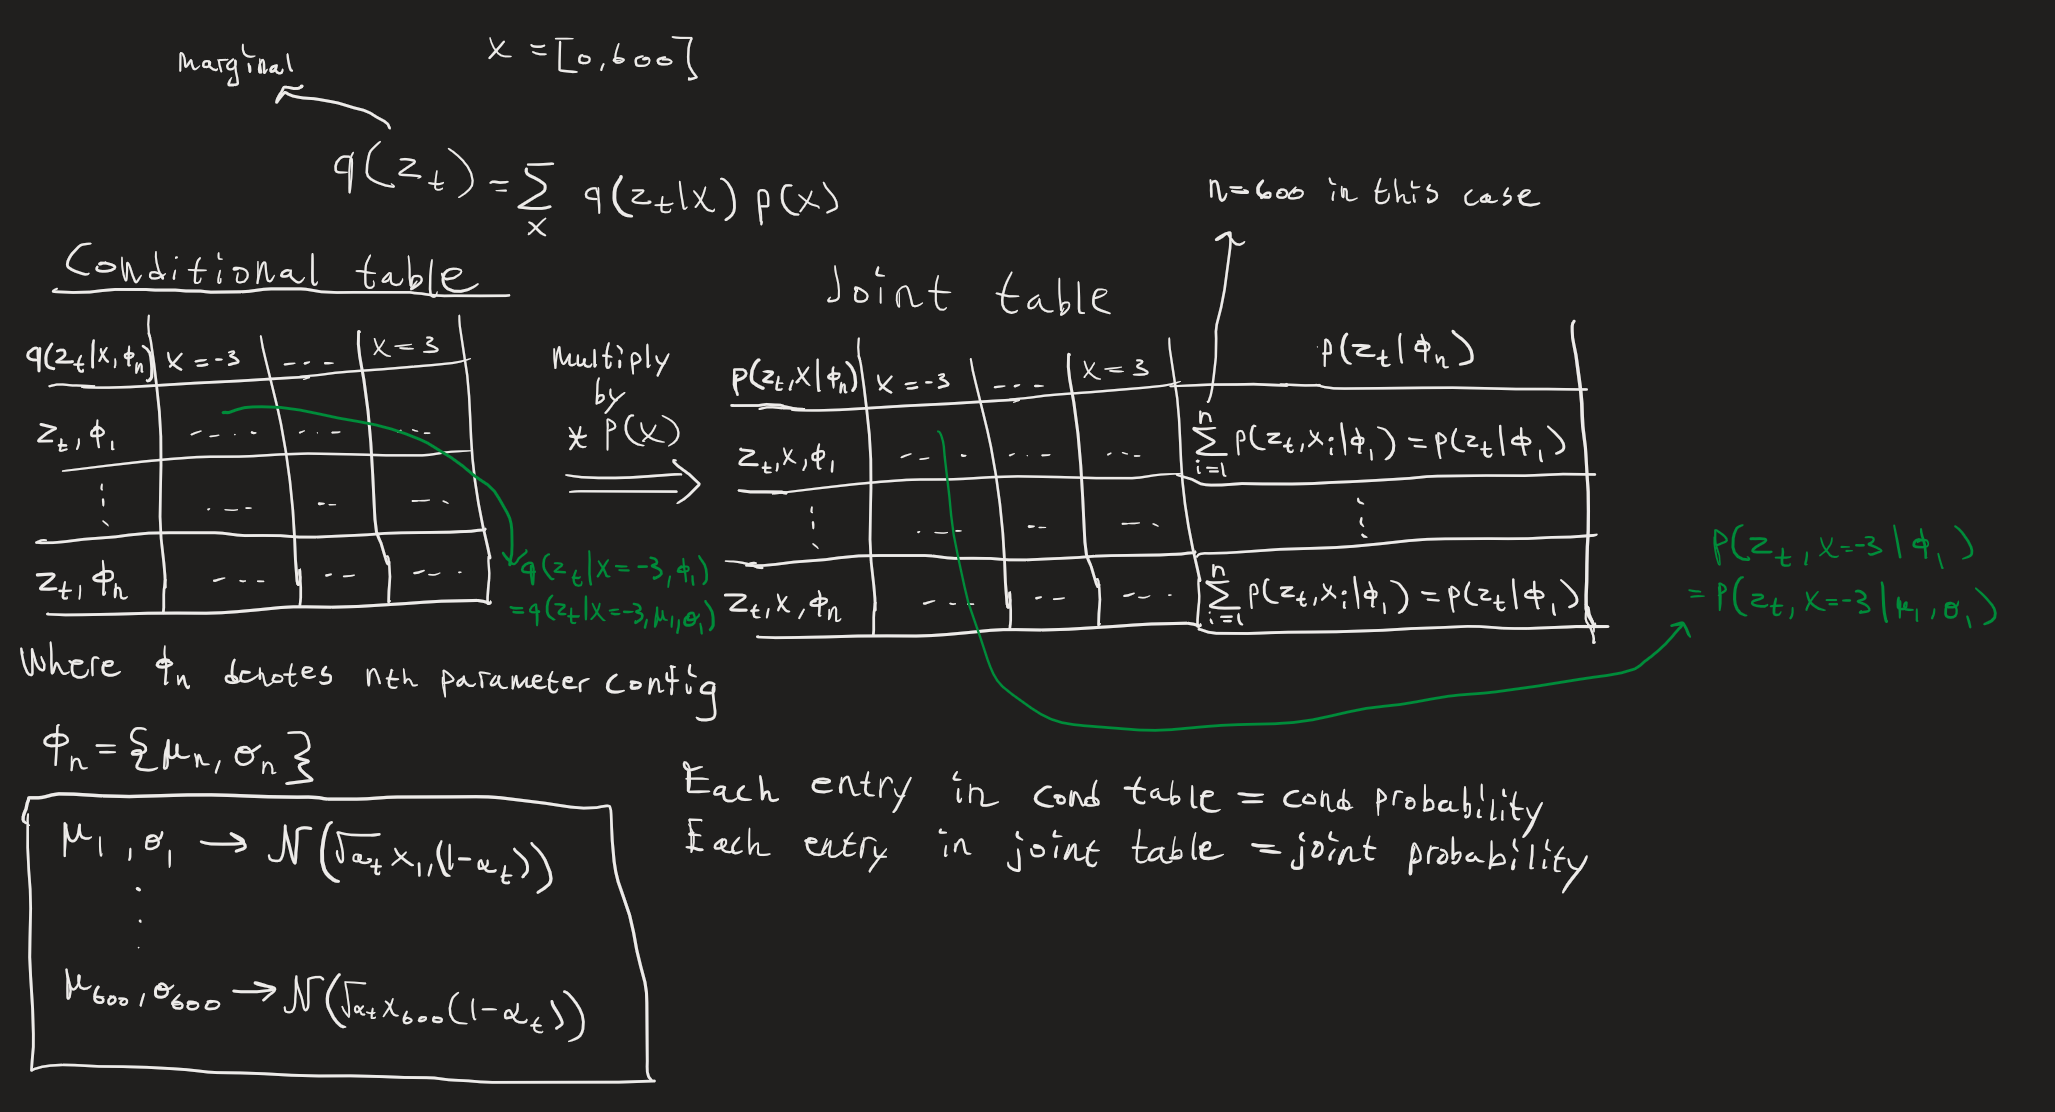 marginal
x = [0,600]
q(z_t) = Σ_x q(z_t|x) p(x)
n=600 in this case
Conditional table
q(z_t|x,ϕ_n) x = -3 ---- x = 3
z_t, ϕ_1 -.... -.... ---
⋮ .--- -- --.
z_t, ϕ_n --- -- ---.
multiply
by
* P(x)
q(z_t|x=-3,ϕ_1)
=q(z_t|x=-3,μ_1,σ_1)
Joint table
p(z_t,x|ϕ_n) x = -3 ---- x = 3 p(z_t|ϕ_n)
z_t,x,ϕ_1 --. . -... --- Σ_{i=1}^{n} p(z_t,x_i|ϕ_1) = p(z_t|ϕ_1)
⋮ .--- -- --. ⋮
z_t,x,ϕ_n --- -- ---. Σ_{i=1}^{n} p(z_t,x_i|ϕ_1) = p(z_t|ϕ_1)
P(z_t, x=-3|ϕ_1)
= P(z_t, x=-3|μ_1,σ_1)
Where ϕ_n denotes nth parameter config
ϕ_n = {μ_n, σ_n}
μ_1, σ_1 → N(√α_t x_1,(1-α_t))
⋮
μ_600, σ_600 → N(√α_t x_600(1-α_t))
Each entry in cond table = cond probability
Each entry in joint table = joint probability